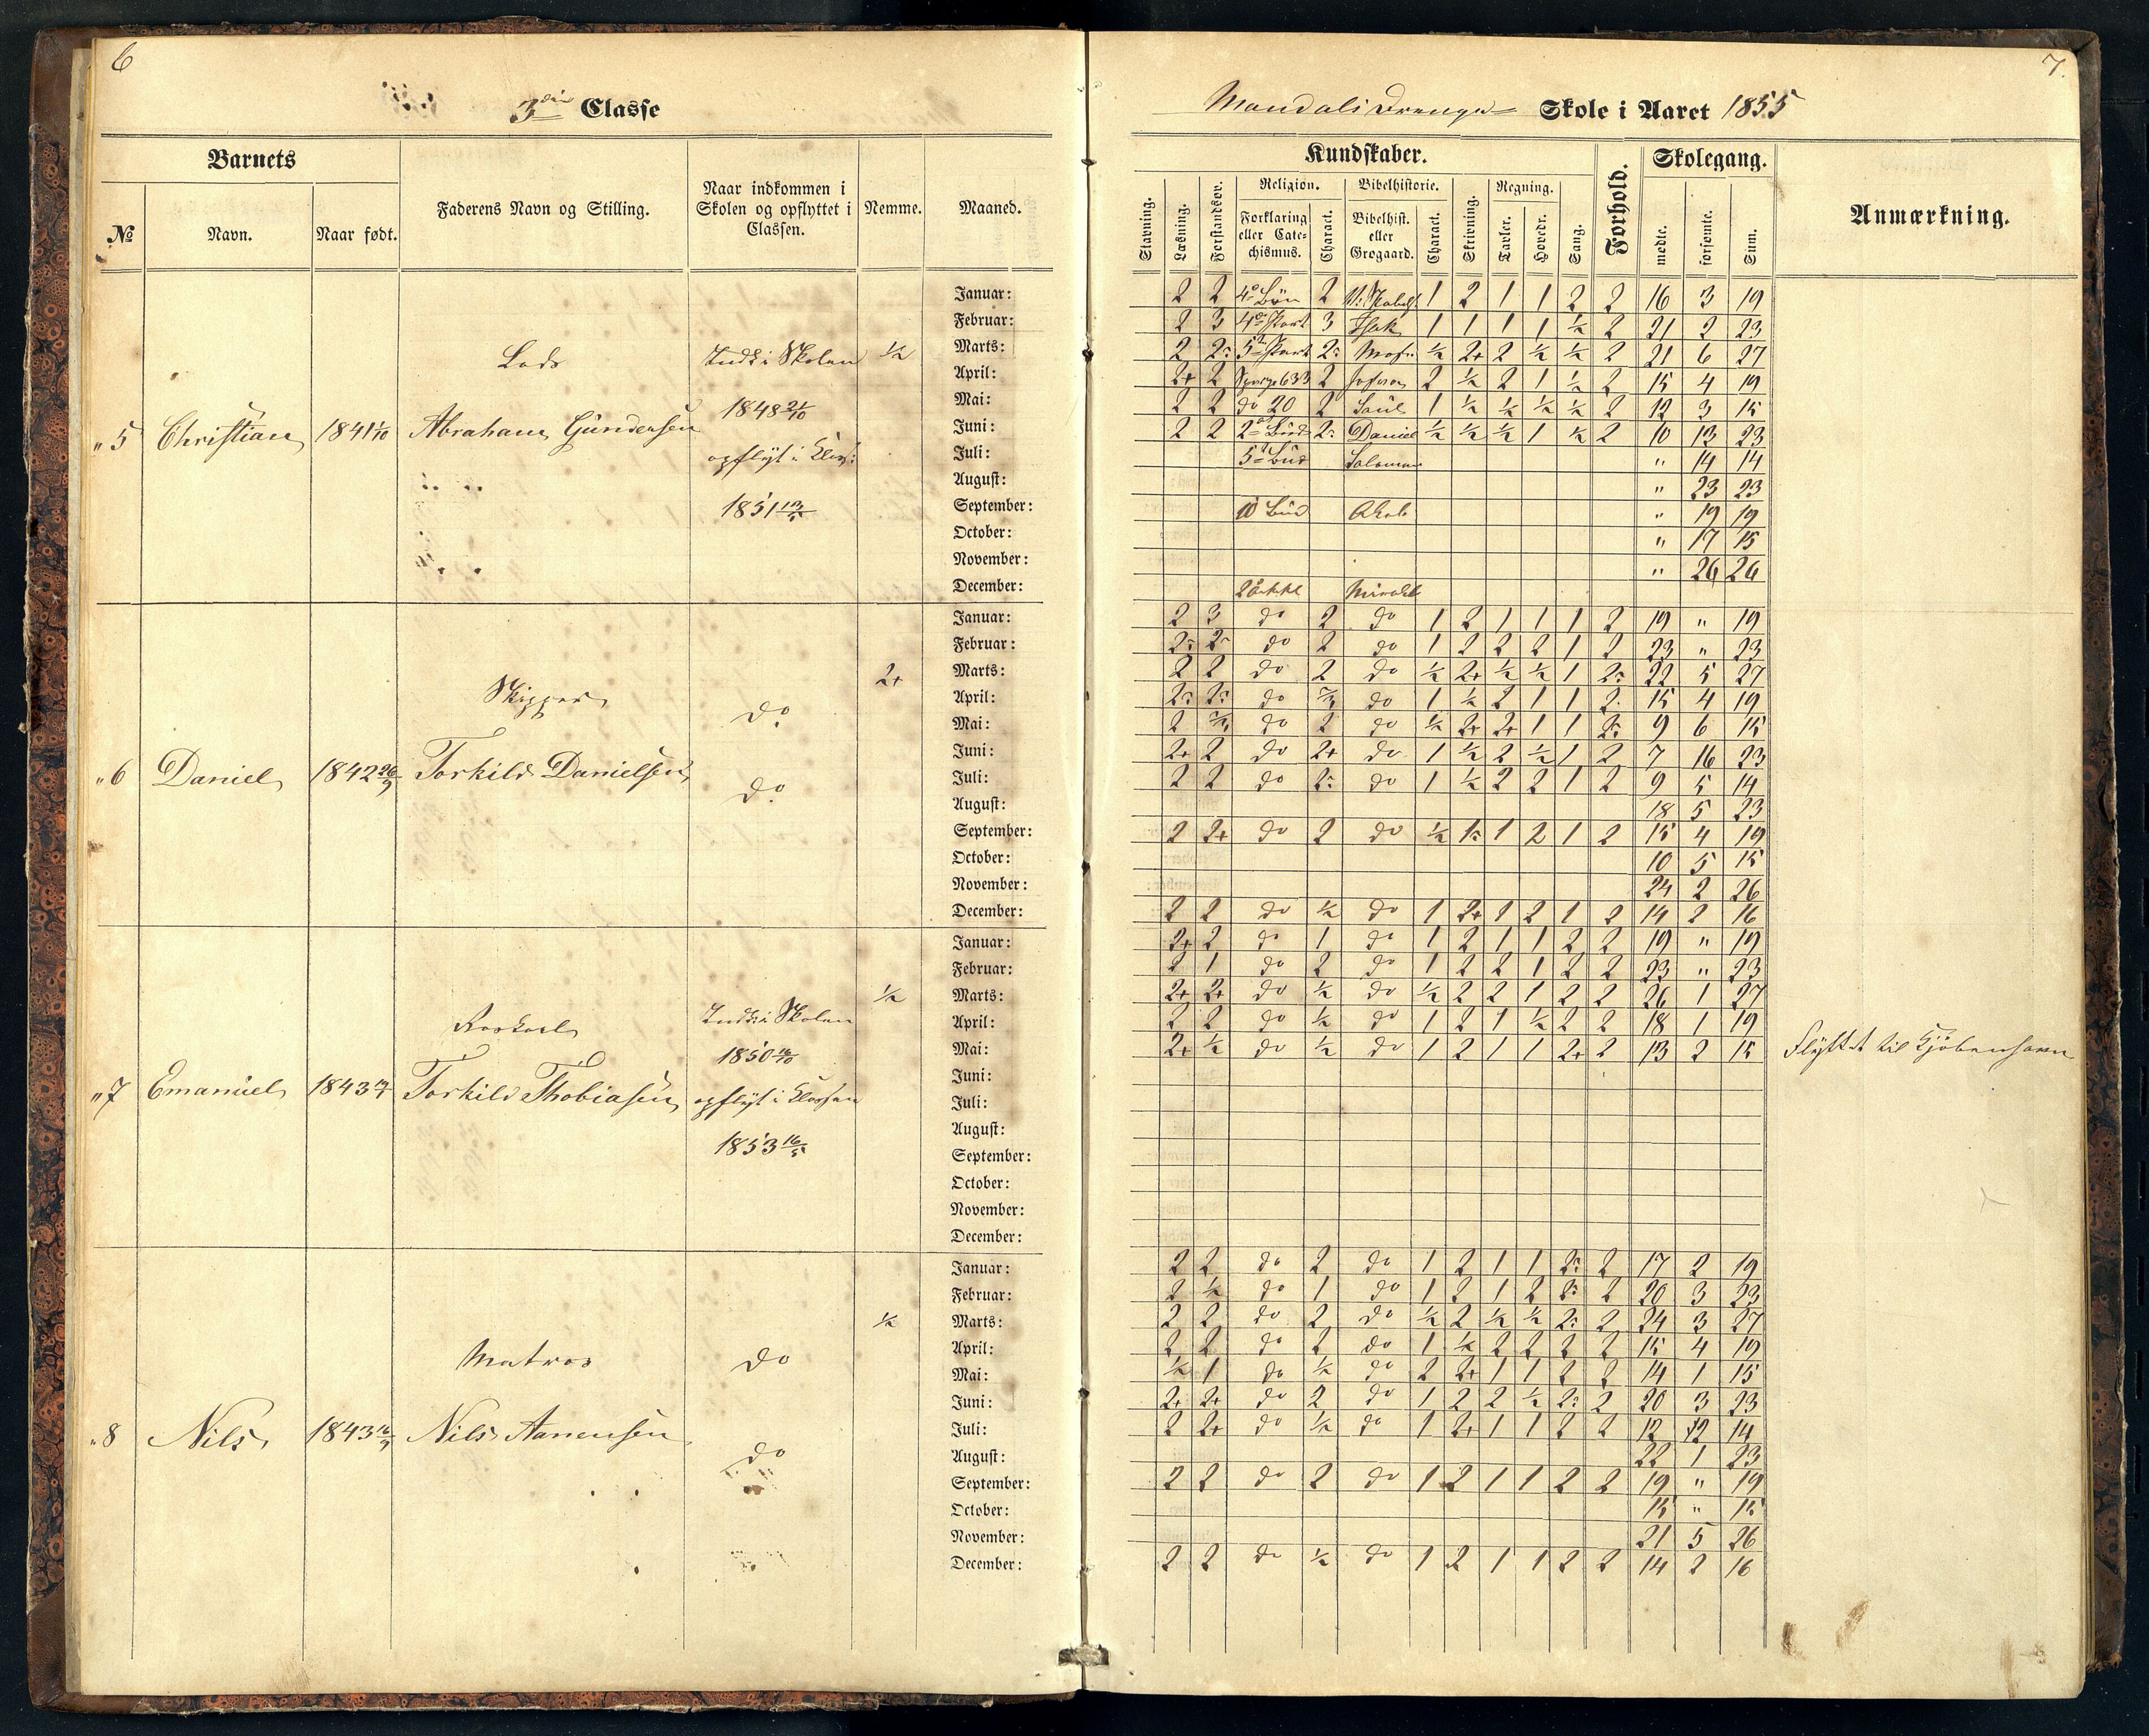 6
3die Classe
Barnets
№
Navn.
Naar født.
Faderens Navn og Stilling.
Naar indkommen i
Skolen og opflyttet i
Classen.
Nemme.
Maaned.
Januar:
Februar:
Lods
Indk i Skolen
1/2
Marts:
April:
1848 21/10
Mai:
"5 Christian 1841 1/10 Abraham Gundersen
Juni:
opflyt i Klas:
Juli:
August:
1851
September:
October:
November:
December:
Januar:
Februar:
2+
Marts:
Skipper
do
April:
Mai:
"6 Daniel 1842 Torkild Danielsen
Juni:
do
Juli:
August:
September:
October:
November:
December:
Januar:
Februar:
1/2
Marts:
Indk i Skolen
April:
1850
Mai:
Juni:
"7 Emanuel 1843 Torkild Thobiasen
opflyt i Klassen
Juli:
1853 16/5
August:
September:
October:
November:
December:
Januar:
Februar:
1/2
Marts:
Matros
do
April:
Mai:
Juni:
"8 Nils 1843 Nils Aanensen
do
Juli:
August:
September:
October:
November:
December:
7.
Mandals Drenge Skole i Aaret 1855
Kundskaber.
Forhold.
Skolegang.
Anmærkning.
Stavning.
Læsning.
Forstandsøv.
Religion.
Forklaring
eller Cate-
chismus.
Charact.
Bibelhistorie.
Bibelhist.
eller
Grøgaard.
Charact.
Skrivning.
Regning.
Tavler.
Hovedr.
Sang.
mødte.
forsømte.
Sum.
2 2 4de Bøn 2 1 2 1 1 2 2 16 3 19
2 3 4de Part 3 Isak 1 1 1 1 1/2 2 21 2 23
2 2 5te Part 2 1/2 2+ 2 1/2 1/2 2 21 6 27
2+ 2 633 2 2 1/2 2 1 1/2 2 15 4 19
2 2 do 20 2 Saul 1 1/2 1/2 1/2 1/2 2 12 3 15
2 2 2det Bud 2 Daniel 1/2 1/2 1/2 1 1/2 2 10 13 23
5te Bud Salomon " 14 14
" 23 23
10 Bud Akab " 19 19
" 17 15
" 26 26
2 3 do 2 do 1 2 1 1 1 2 19 " 19
2 2 do 2 do 1 2 2 2 1 2 23 " 23
2 2 do 2 do 1/2 2+ 1/2 1/2 1 2 22 5 27
2 2 do do 1 1/2 2 1 1 2 15 4 19
2 do 2 do 1/2 2+ 2+ 1 1 2 9 6 15
2+ 2 do 2+ do 1 1/2 2 1/2 1 2 7 16 23
2 2 do 2 do 1 1/2 2 2 1 2 9 5 14
18 5 23
2 2+ do 2 do 1/2 1 1 2 1 2 15 4 19
10 5 15
24 2 26
2 2 do 1/2 do 1 2+ 1 2 1 2 14 2 16
2+ 2 do 1 do 1 2 1 1 2 2 19 " 19
2 1 do 2 do 1 2 2 1 2 2 23 " 23
2+ 2+ do 1/2 do 1/2 2 2 1 2 2 26 1 27
2 2 do 1/2 do 1 2 1 1/2 2 2 18 1 19
2+ 1/2 do 1/2 do 1 2 1 1 2+ 2 13 2 15 Flyttet til Kjøbenhavn
2 2 do 2 do 1 2 1 1 2 2 17 2 19
2 1/2 do 1 do 1 2 1 2 2 2 20 3 23
2 2 do 2 do 1/2 2 1/2 1/2 2 2 24 3 27
2 2 do 2 do 1 1/2 2 2 2 2 15 4 19
1/2 1 do 1/2 do 2 2+ 1 1 2 2 14 1 15
2+ 2+ do 2 do 1 2 2 1/2 2 2 20 3 23
2 2+ do 1/2 do 1 2+ 1 1 2 2 12 2 14
22 1 23
2 2 do 2 do 1 2 1 1 2 2 19 " 19
15 " 15
21 5 26
2 2 do 1/2 do 1 2 1 1 2 2 14 2 16